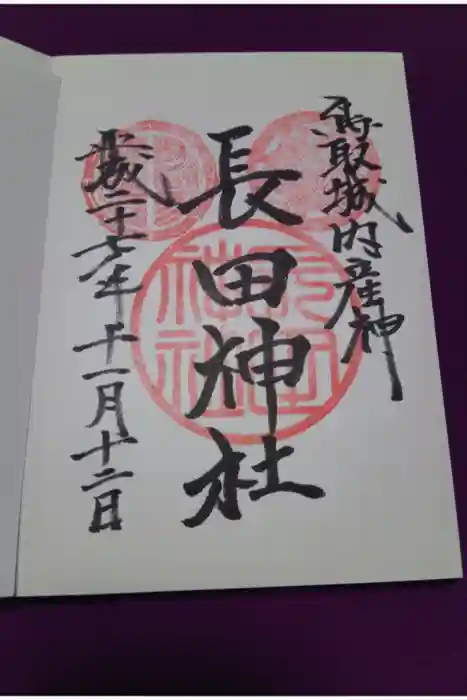 鳥取城内産神
長田神社
平成二十七年十一月十二日